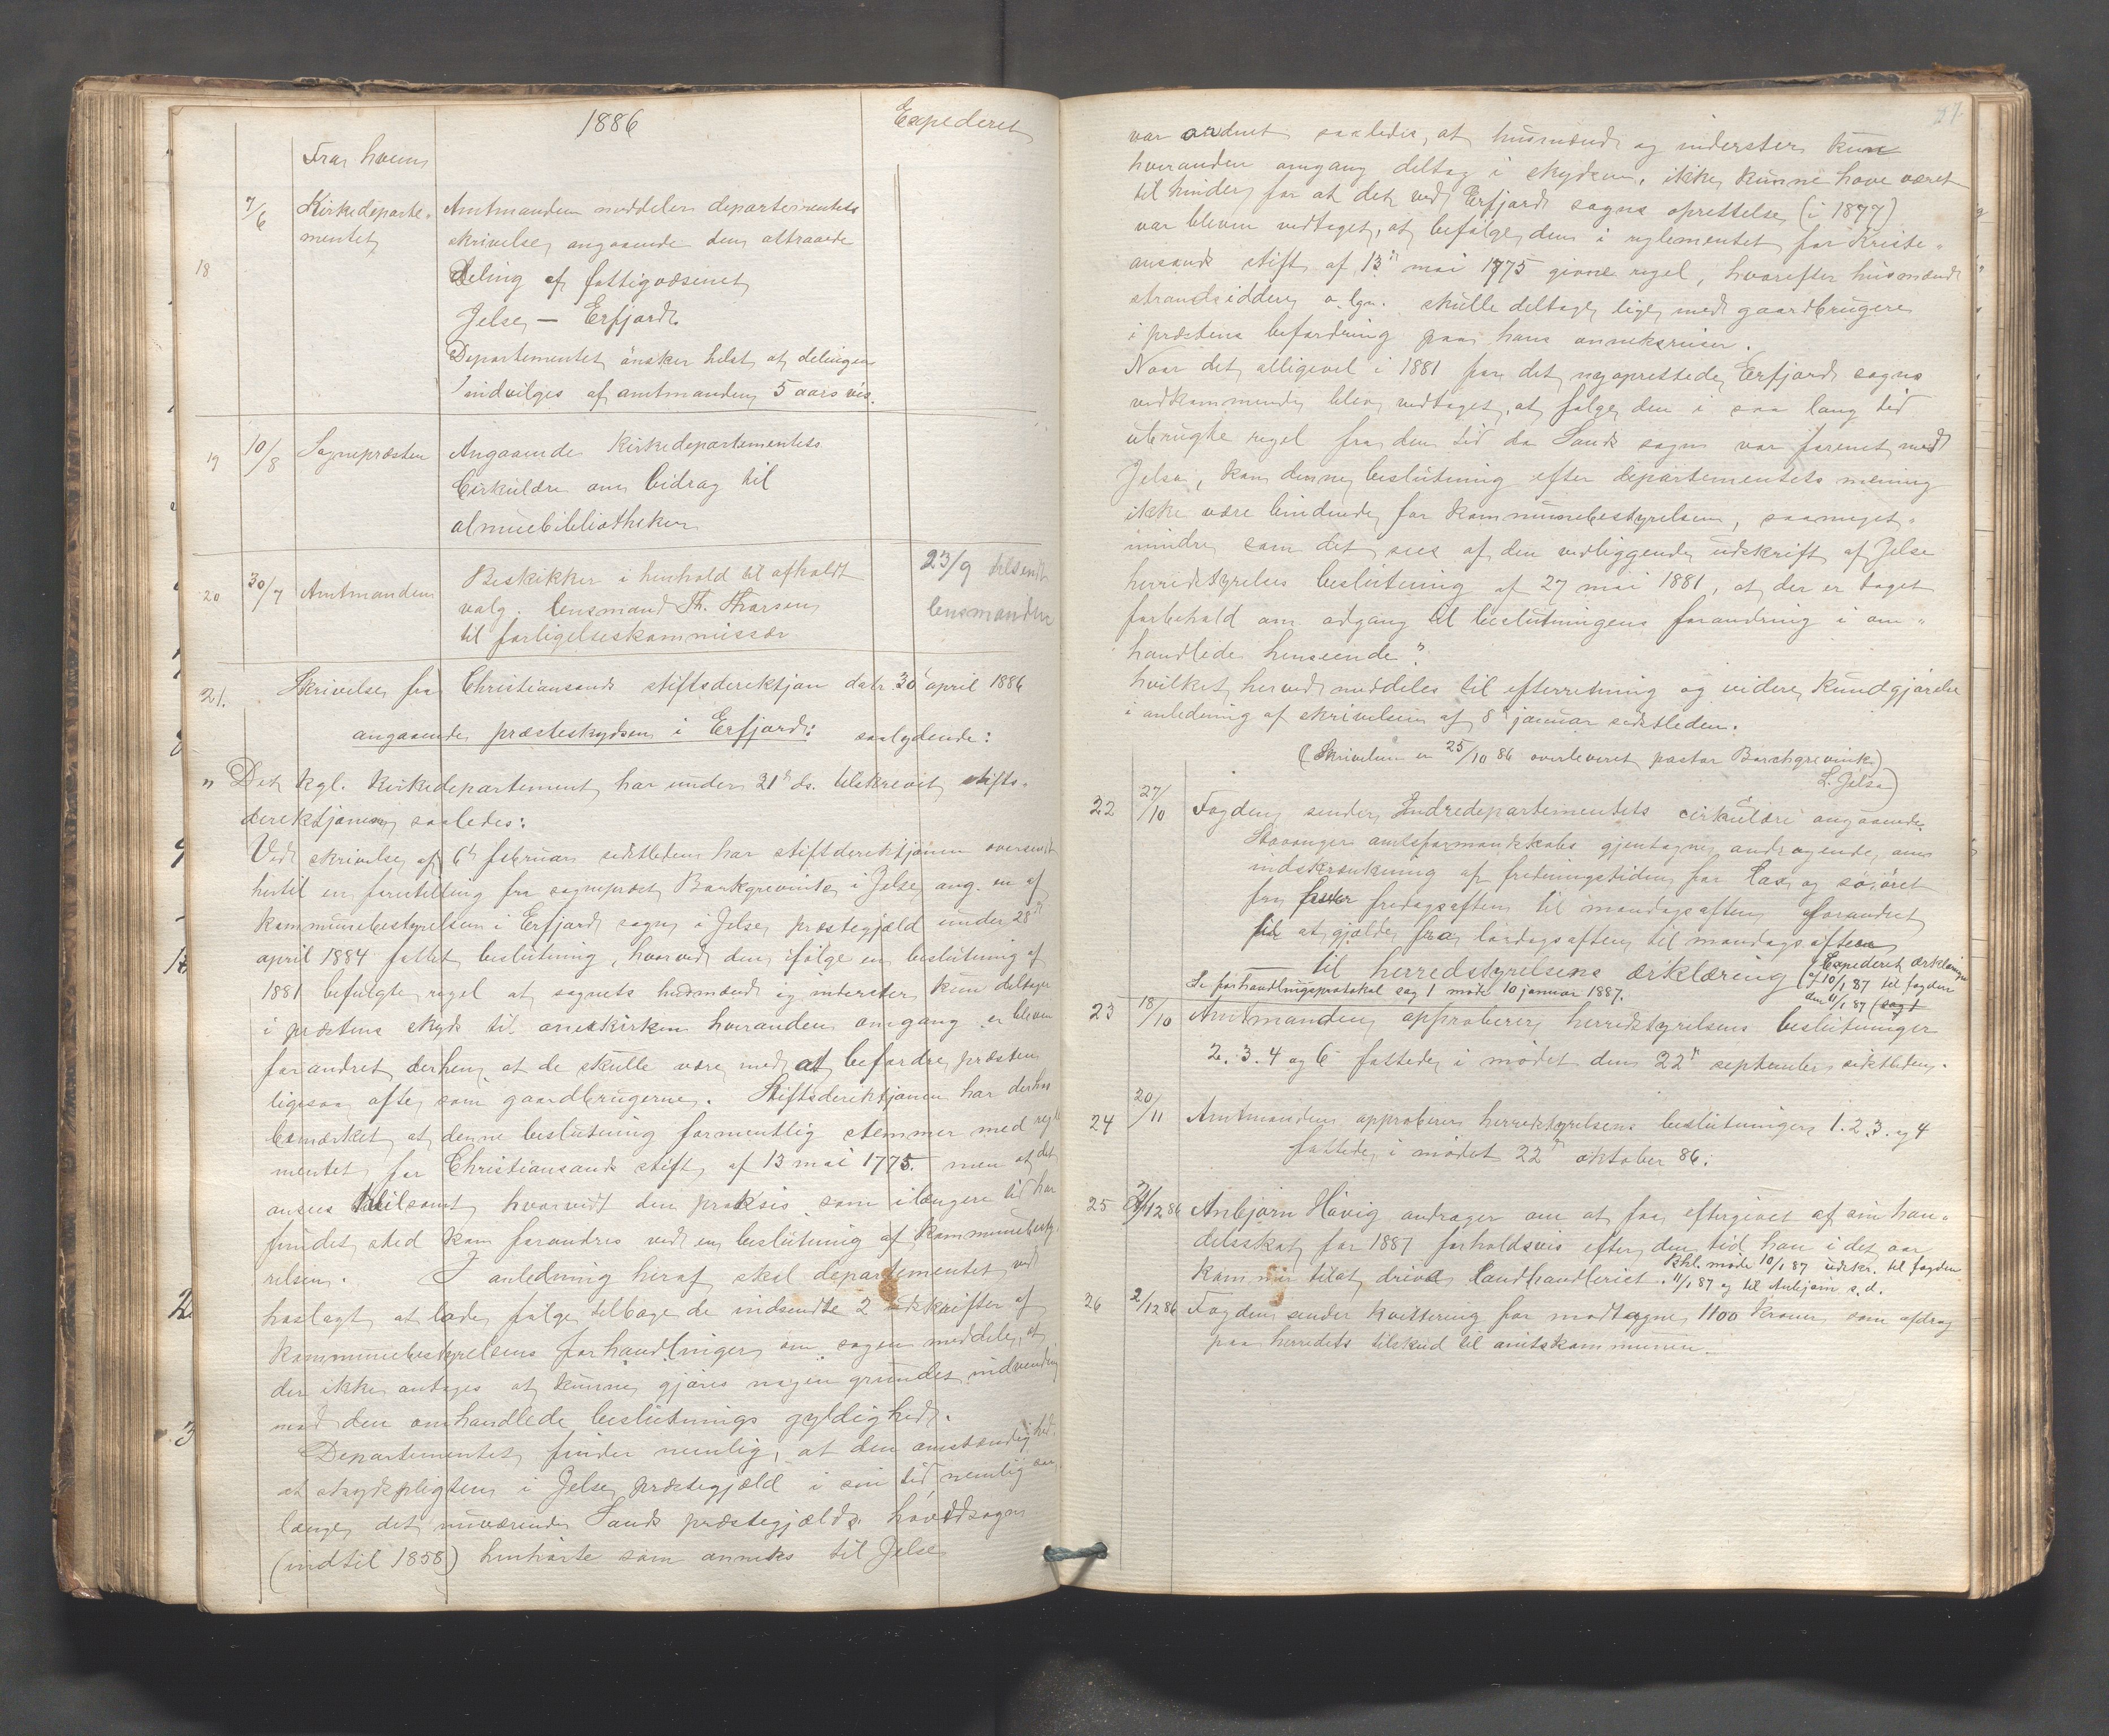 1886
Expederet
Fra hvem
18 7/6 Kirkedeparte-
mentet
Amtmanden meddeler departementets
skrivelse angaaende den attraaede
Deling af fattigvæsenet
Jelse — Erfjord.
Departementet ønsker helst at delingen
indvilges af amtmanden 5 aars vis.
19 10/8 Sognepræsten
Angaaende Kirkedepartementets
Cirkulære om bidrag til
almuebibliotheker
20 30/7 Amtmanden
Beskikker i henhold til afholdt
valg. lensmand Th. Thorsen
til forligelseskommissær
23/9 tilsendt
lensmanden
21. Skrivelse fra Christiansands stiftsdirektjon datr. 30 april 1886
angaaende præsteskydsen i Erfjord: saalydende:
" Det kgl. Kirkedepartement har under 21de ds. tilskrevet stifts-
direktjonen saaledes:
Ved skrivelse af 6te februar sidstleden har stiftsdirektjonen oversendt
hertil en forestilling fra sognepræst Borkgrevink i Jelse ang. en af
kommunebestyrelsen i Erfjord sogn i Jelse præstegjæld under 28de
april 1884 fattet beslutning, hvorved den ifølge en beslutning af
1881 befulgte regel at sognets husmænd og inderster kun deltager
i præstens skyds til anekskirken hveranden omgang er bleven
forandret derhen at de skulle være med at befordre præsten
ligesaa ofte som gaardbrugerne. Stiftsdirektjonen har derhos
bemærket at denne beslutning formentlig stemmer med regle
mentet for Christiansands stift af 13 mai 1775. men at det
ansees tvilsomt hvorvidt den praksis som i længere tid har
fundet sted kan forandres ved en beslutning af kommunebesty-
relsen. I anledning heraf skal departementet ved
hoslagt at lade følge tilbage de indsendte 2 udskrifter af
kommunebestyrelsens forhandlinger om sagen meddele, at
der ikke antages at kunne gjøres nogen grundet indvending
mod den omhandlede beslutnings gyldighed.
Departementet finder nemlig, at den omstændighed,
at skydspligten i Jelse præstegjæld i sin tid, nemlig saa
længe det nuværende Sands præstegjælds hovedsogn
(indtil 1858) henhørte som anneks til Jelse
51.
var ordnet saaledes, at husmænd og inderster kun
hveranden omgang deltog i skydsen, ikke kunne have været
til hinder for at det ved Erfjord sogns oprettelse (i 1877)
var bleven vedtaget, at befølge den i reglementet for Kristi-
ansands stift af 13de mai 1775 givne regel, hvorefter husmænd
strandsiddere o. lgn. skulle deltage lige med gaardbrugere
i præstens befordring paa hans anneksreiser.
Naar det alligevel i 1881 for det nyoprettede Erfjord sogns
vedkommende blev vedtaget, at følge den i saa lang tid
ubrugte regel fra den tid da Sands sogn var forenet med
Jelse, kan denne beslutning efter departementets mening
ikke være bindende for kommunebestyrelsen, saameget-
mindre som det sees af den vedliggende udskrift af Jelse
herredstyrelses beslutning af 27 mai 1881, at der er taget
forbehold om adgang til beslutningens forandring i om-
handlede henseende".
hvilket herved meddeles til efterretning og videre kundgjørelse
i anledning af skrivelsen af 8de januar sidstleden.
(Skrivelsen er 25/10 86 overleveret pastor Borchgrevink
L. Jelsa)
22 27/10 Fogden sender Indredepartementets cirkulære angaaende
Stavanger amtsformandskabs gjentagne andragende om
indskrænkning af fredningstiden for lax og søiøret
fra fredagsaften til mandagsaften forandret
til at gjælde fra lørdagsaften til mandagsaften
til herredstyrelsens erklæring (Expederet erklæringen
af 10/1 87 til fogden
den 11/1 87 (sag 1
Se forhandlingsprotokol sag 1 møde 10 januar 1887.
23 18/10 Amtmanden approberer herredstyrelsens beslutninger
2. 3. 4 og 6 fattede i mødet den 22de september sidstleden.
24 20/11 Amtmanden approberer herredstyrelsens beslutninger 1. 2. 3. og 4
fattede i mødet 22de oktober 86.
25 /12 86 Anbjørn Høvig andrager om at faa eftergivet af sin han-
delsskat for 1887 forholdsvis efter den tid han i det aar
kommer til at drive landhandleriet. Bhl. møde 10/1 87 udskr. til fogden
11/1 87 og til Anbjørn s.d.
26 2/12 86 Fogden sender kvittering for modtagne 1100 kroner som afdrag
paa herredets tilskud til amtskommunen.